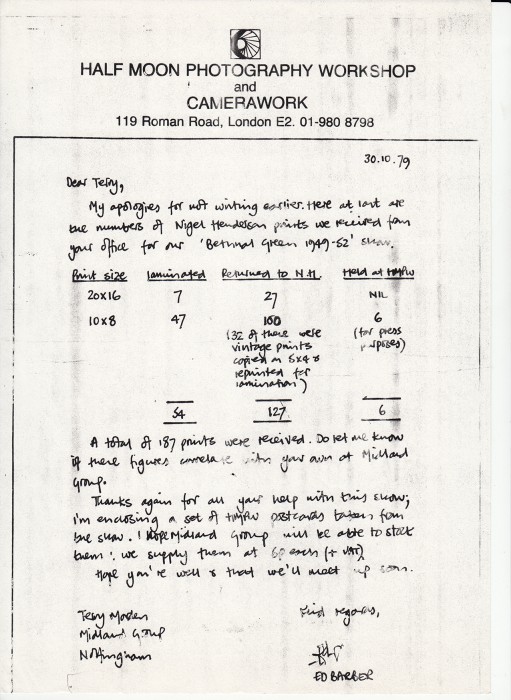 HALF MOON PHOTOGRAPHY WORKSHOP
and
CAMERAWORK
119 Roman Road, London E2. 01-980 8798
30.10.79
Dear Terry,
My apologies for not writing earlier. Here at last are
the numbers of Nigel Henderson prints we received from
your office for our 'Bethnal Green 1949-52' show.
Print size laminated Returned to N.H. Held at HMPW
20x16 7 27 NIL
10x8 47 100 6
(32 of these were (for press
vintage prints purposes)
copied on 5x4 &
reprinted for
lamination)
54 127 6
A total of 187 prints were received. Do let me know
if these figures correlate with your own at Midland
Group.
Thanks again for all your help with this show;
i'm enclosing a set of HMPW postcards taken from
the show. I hope Midland Group will be able to stock
them; we supply them at 6p each (+ VAT)
Hope you're well & that we'll meet up soon.
Kind regards,
Terry Morden
Midland Group
Nottingham
ED BARBER